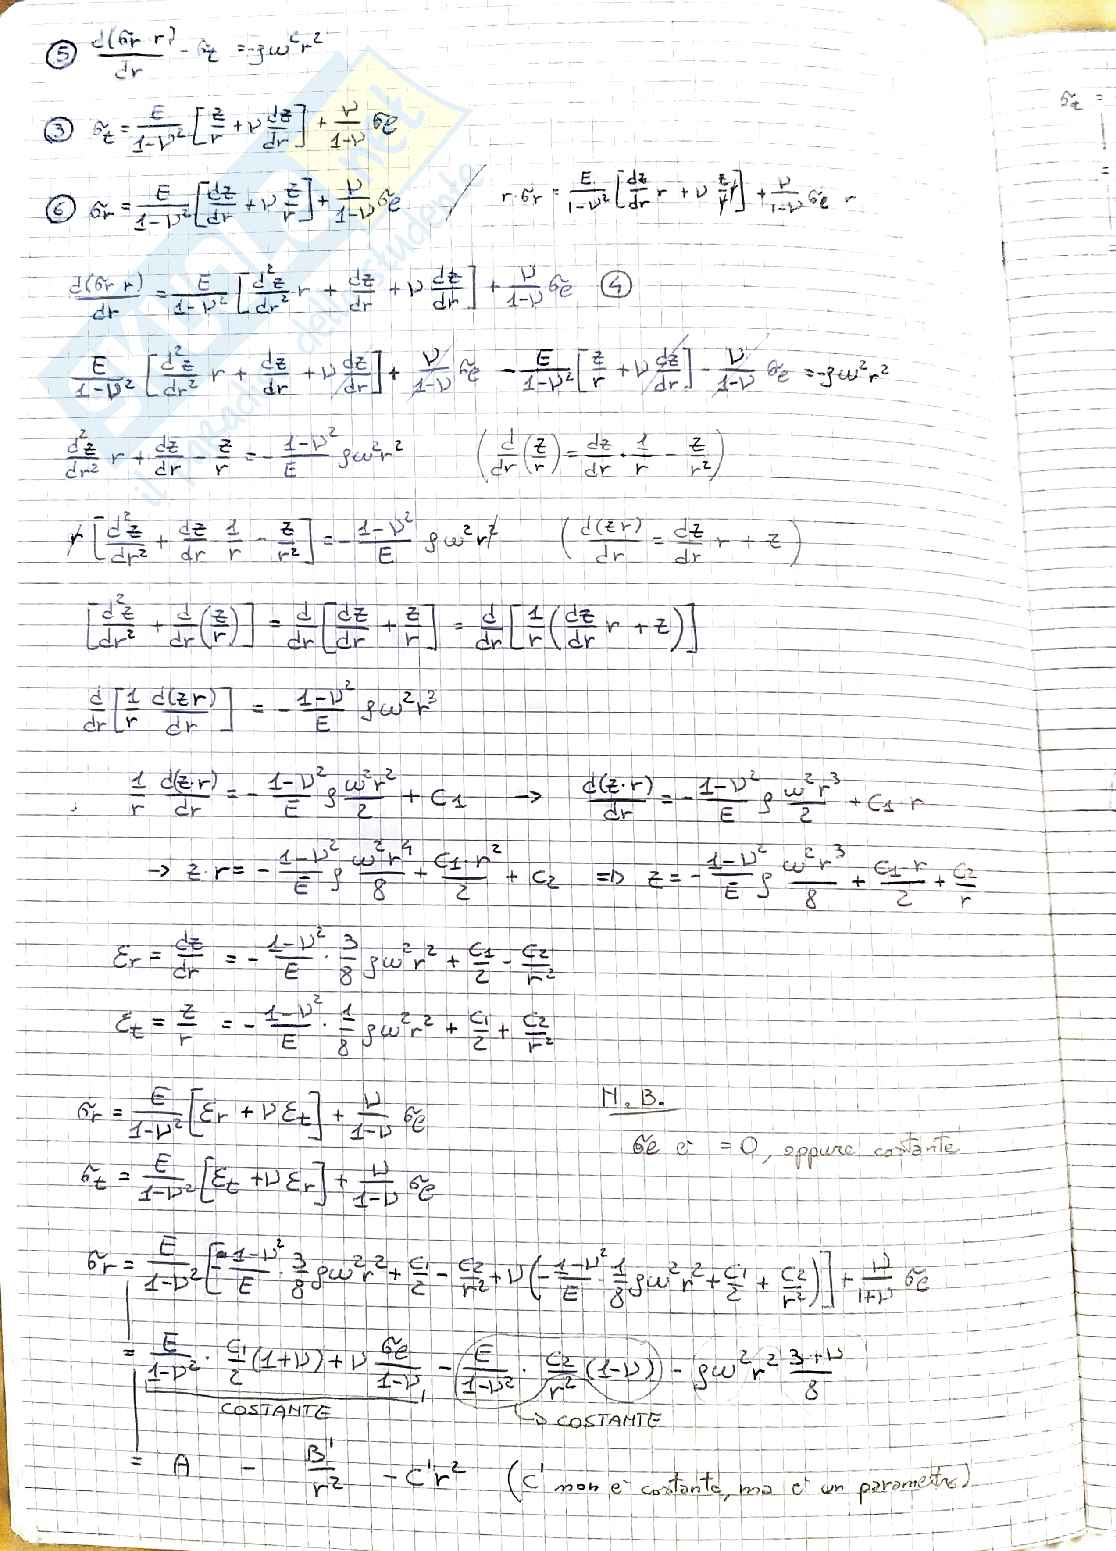 ⑤ d(σr·r)/dr - σt = -ρω²r²
σt =
=
③ σt = E/(1-ν²) [z/r + ν dz/dr] + ν/(1-ν) σe
⑥ σr = E/(1-ν²) [dz/dr + ν z/r] + ν/(1-ν) σe / r·σr = E/(1-ν²) [dz/dr r + ν z/r r] + ν/(1-ν) σe r
d(σr r)/dr = E/(1-ν²) [d²z/dr² r + dz/dr + ν dz/dr] + ν/(1-ν) σe ④
E/(1-ν²) [d²z/dr² r + dz/dr + ν dz/dr] + ν/(1-ν) σe - E/(1-ν²) [z/r + ν dz/dr] - ν/(1-ν) σe = -ρω²r²
d²z/dr² r + dz/dr - z/r = - (1-ν²)/E ρω²r² (d/dr (z/r) = dz/dr · 1/r - z/r²)
r [d²z/dr² + dz/dr 1/r - z/r²] = - (1-ν²)/E ρω²r² (d(zr)/dr = dz/dr r + z)
[d²z/dr² + d/dr (z/r)] = d/dr [dz/dr + z/r] = d/dr [1/r (dz/dr r + z)]
d/dr [1/r d(zr)/dr] = - (1-ν²)/E ρω²r³
1/r d(z·r)/dr = - (1-ν²)/E ρ ω²r²/2 + C1 → d(z·r)/dr = - (1-ν²)/E ρ ω²r³/2 + C1·r
→ z·r = - (1-ν²)/E ρ ω²r⁴/8 + C1·r²/2 + C2 => z = - (1-ν²)/E ρ ω²r³/8 + C1·r/2 + C2/r
εr = dz/dr = - (1-ν²)/E · 3/8 ρω²r² + C1/2 - C2/r²
εt = z/r = - (1-ν²)/E · 1/8 ρω²r² + C1/2 + C2/r²
σr = E/(1-ν²) [εr + ν εt] + ν/(1-ν) σe
N.B.
σe è = 0, oppure costante
σt = E/(1-ν²) [εt + ν εr] + ν/(1-ν) σe
σr = E/(1-ν²) [- (1-ν²)/E · 3/8 ρω²r² + C1/2 - C2/r² + ν (- (1-ν²)/E · 1/8 ρω²r² + C1/2 + C2/r²)] + ν/(1+ν) σe
= E/(1-ν²) · C1/2 (1+ν) + ν σe/(1-ν) - E/(1-ν²) · C2/r² (1-ν) - ρω²r² (3+ν)/8
COSTANTE ↳ COSTANTE
= A - B'/r² - C'r² (C' non è costante, ma è un parametro)
SKUOLA.net
il paradiso dello studente